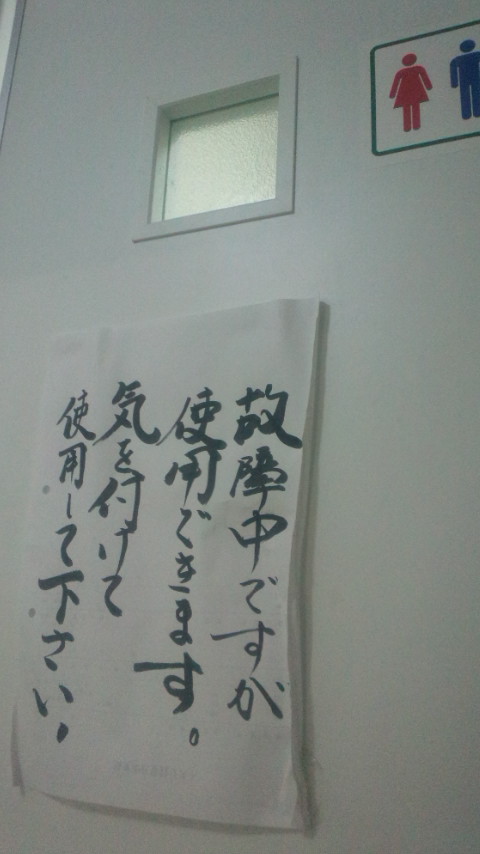 故障中ですが
使用できます。
気を付けて
使用して下さい。